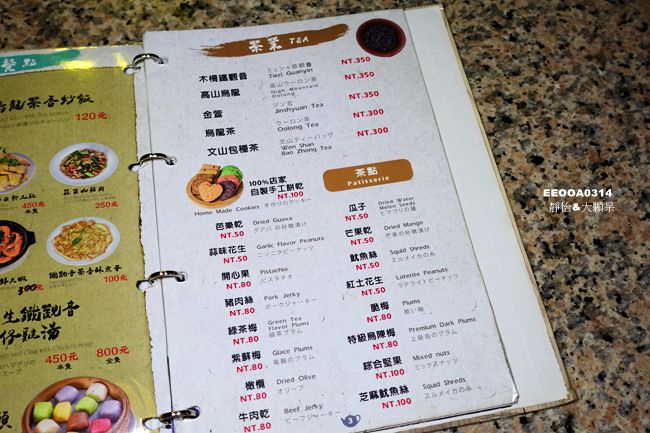 餐點
茶香炒飯
120元
450元
半隻
850元
全隻
180元
300元
鐵觀音茶香酥煎餅
100元
生鐵觀音
仔雞湯
450元
半隻
800元
全隻
茶葉 TEA
木柵鐵觀音
ミュシャ鉄観音
Tieri Guanyin
NT.350
高山烏龍
高山ウーロン茶
High Mountain
Oolong
NT.350
金萱
ジン玄
Jinshyuan Tea
NT.350
烏龍茶
ウーロン茶
Oolong Tea
NT.300
文山包種茶
文山ティーバッグ
Wen Shan
Bao Zhong Tea
NT.300
100%店家
自製手工餅乾
NT.100
Home Made Cookies 手作りのクッキー
茶點
Patisserie
芭樂乾
Dried Guava
グアバ の砂糖漬け
NT.50
蒜味花生
Garlic Flavor Peanuts
ニンニクピーナッツ
NT.50
開心果
Pistachio
ピスタチオ
NT.80
豬肉絲
Pork Jerky
ポークジャーキー
NT.80
綠茶梅
Green Tea
Flavor Plums
緑茶プラム
NT.80
紫蘇梅
Glace Plums
紫蘇のプラム
NT.80
橄欖
Dried Olive
オリーブ
NT.80
牛肉乾
Beef Jerky
ビーフジャーキー
NT.80
瓜子
Dried Water
Melon Seeds
ヒマワリの種
NT.50
芒果乾
Dried Mango
芒果の砂糖漬け
NT.50
魷魚絲
Squid Shreds
スルメイカの糸
NT.50
紅土花生
Laterite Peanuts
ラテライトピーナッツ
NT.50
脆梅
Plums
脆い梅
NT.80
特級烏陳梅
Premium Dark Plums
上級烏のプラム
NT.80
綜合堅果
Mixed nuts
ミックスナッツ
NT.100
芝麻魷魚絲
Squid Shreds
スルメイカの糸
NT.100
3
EEOOA0314
靜怡&大顆呆